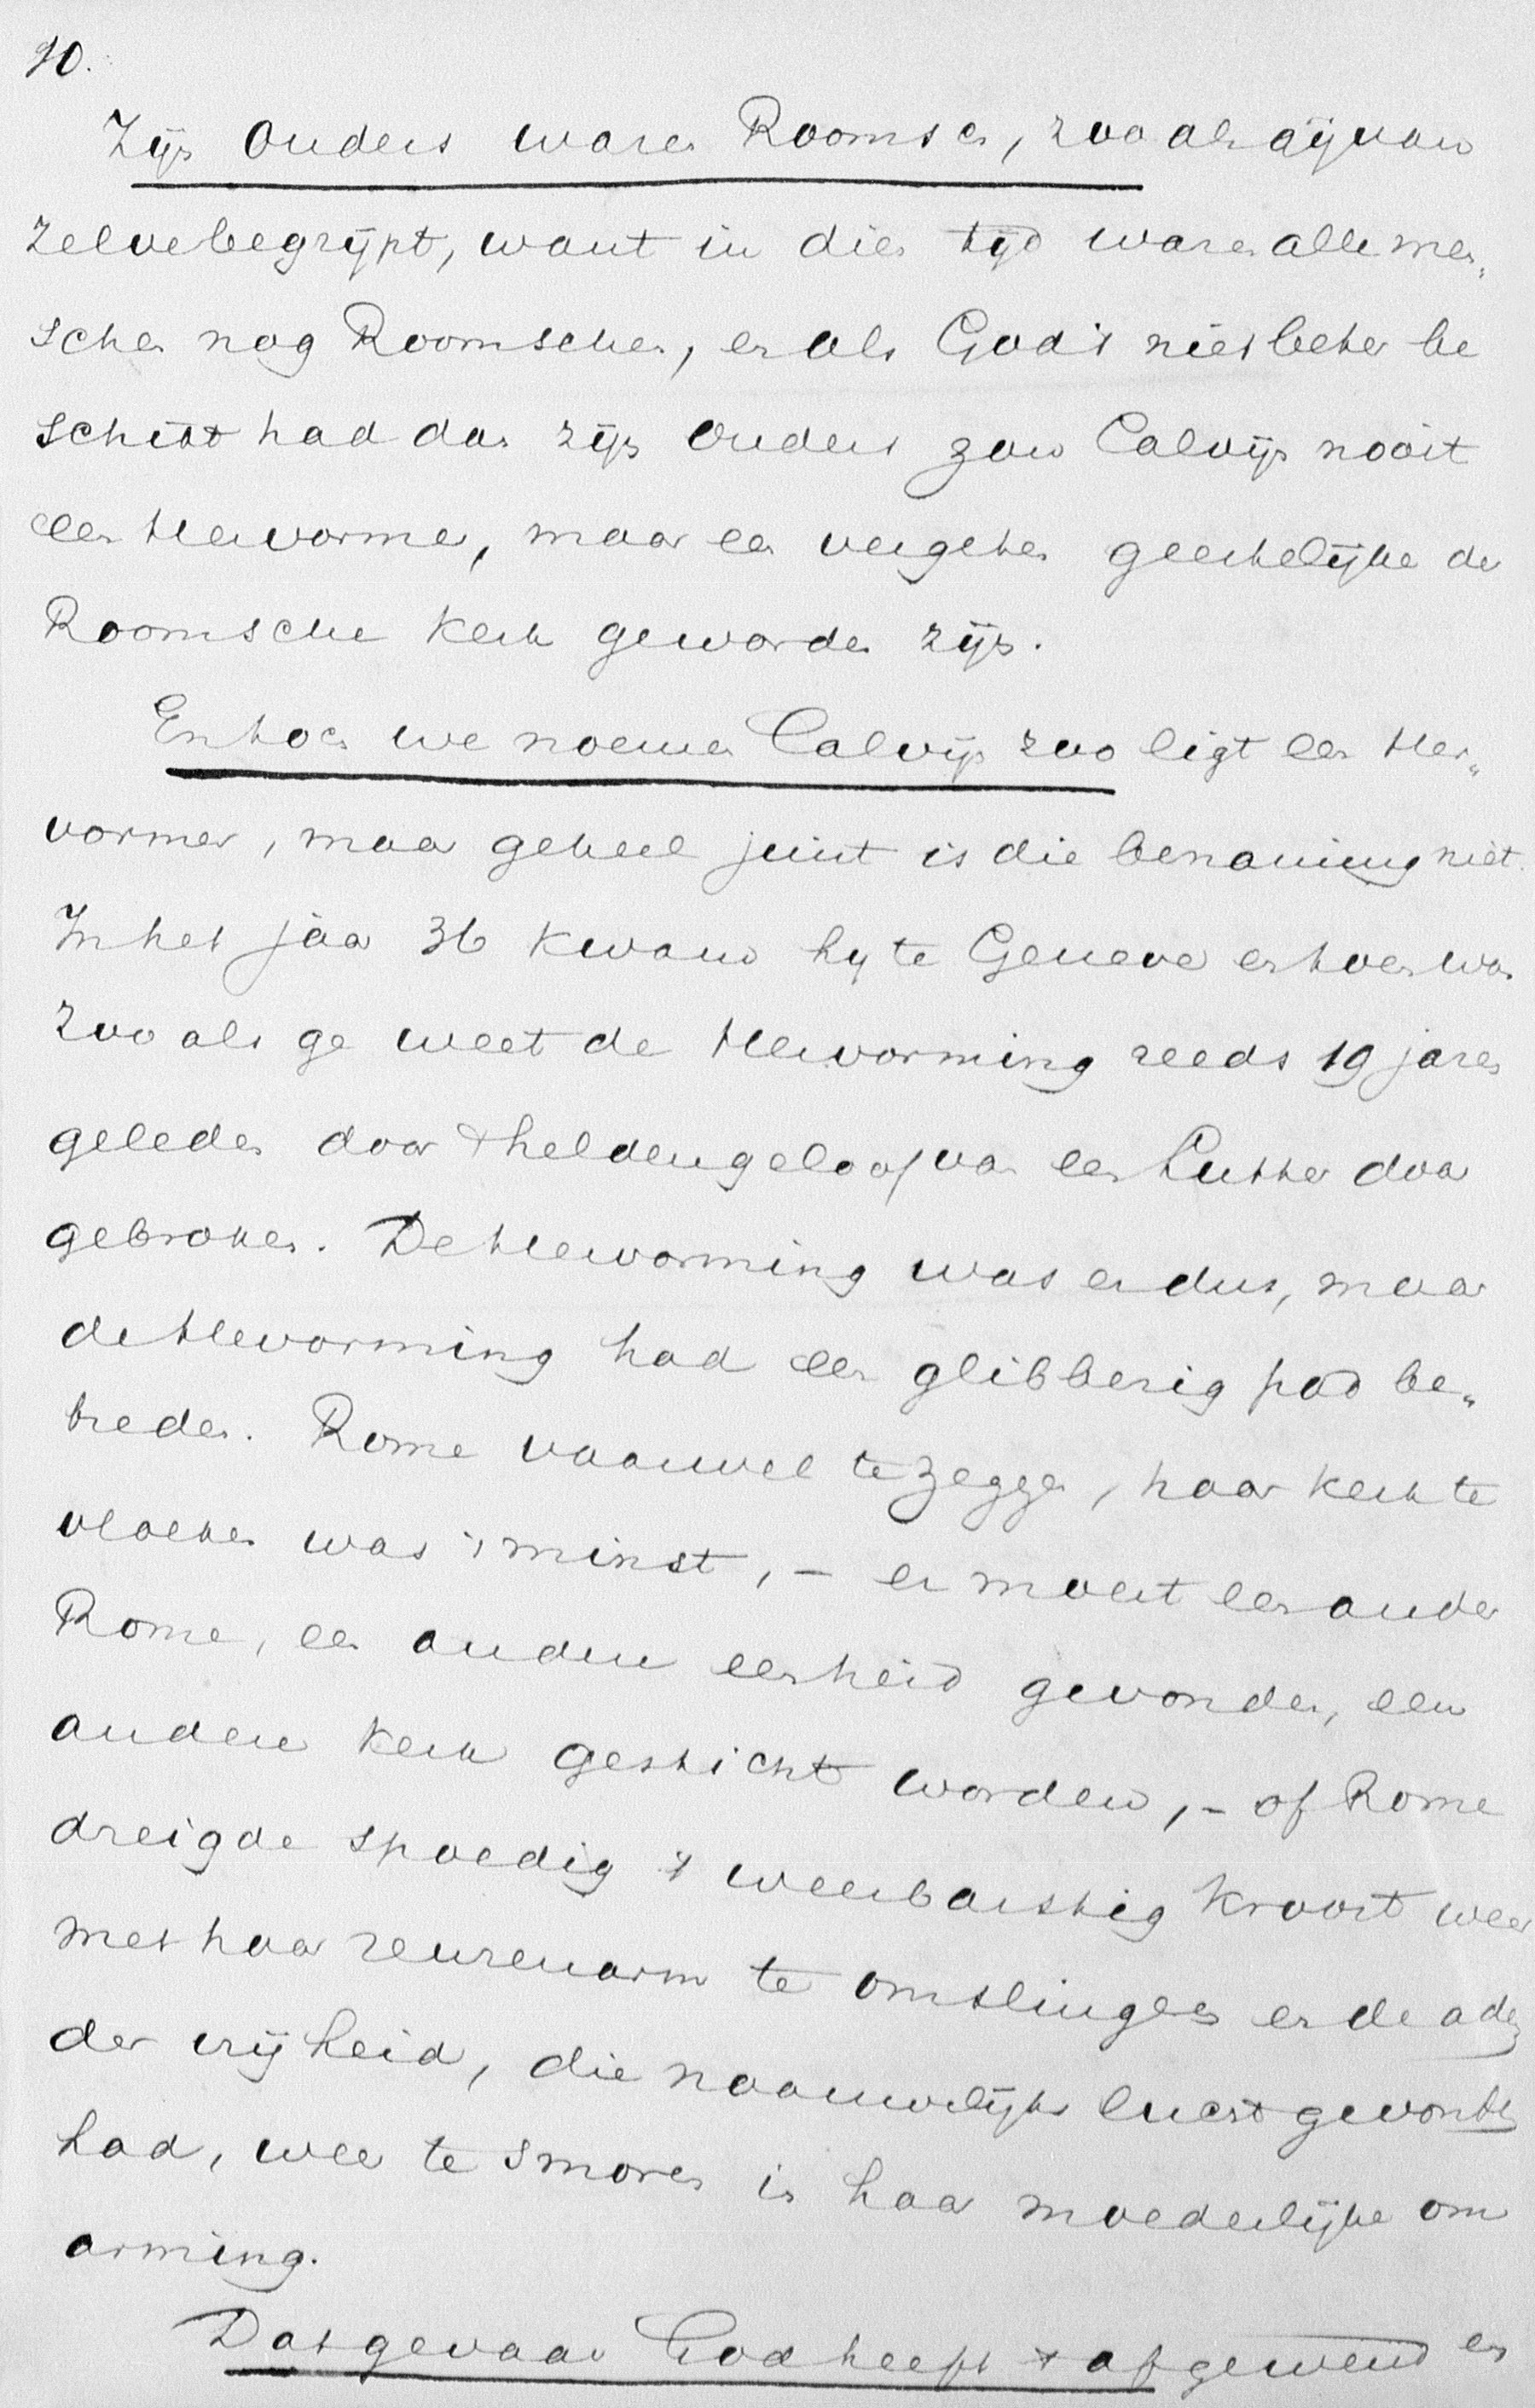 10.
Zijn Ouders waren Roomsch, zooals gij van
zelve begrijpt, want in dien tijd waren alle men„
schen nog Roomschen, en als God 't niet beter be
schikt had dan zijn Ouders zou Calvijn nooit
een Hervormer, maar een vergeten geestelijke der
Roomsche Kerk geworden zijn.
En toch we noemen Calvijn zoo ligt een Her„
vormer, maar geheel juist is die benaming niet.
In het jaar 36 kwam hij te Geneve en toen was
zoo als ge weet de Hervorming reeds 19 jaren
geleden door 't heldengeloof van een Luther door
gebroken. De Hervorming was er dus, maar
de Hervorming had een glibberig pad be„
treden. Rome vaarwel te zeggen, haar kerk te
vloeken was 't minst, – er moest een ander
Rome, een andere eenheid gevonden, een
andere kerk gesticht worden, – of Rome
dreigde spoedig 't weerbarstig kroost weer
met haar reuzenarm te omslingeren en de adem
der vrijheid, die naauwelijks lucht gevonden
had, weer te smoren in haar moederlijke om
arming.
Dat gevaar God heeft 't afgewend en